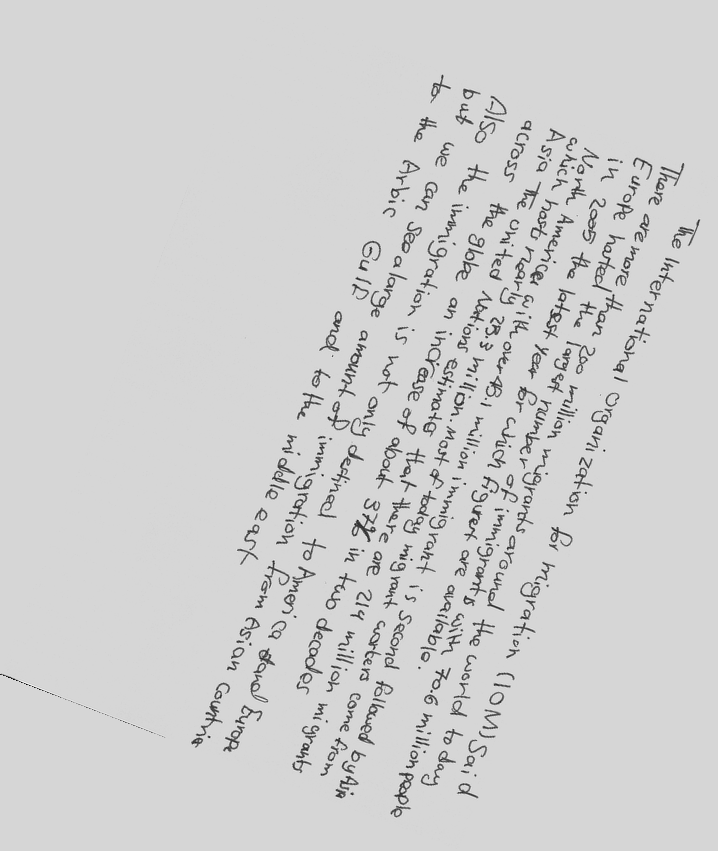 The International Organization for migration (IOM) Said
There are more than 200 million migrants around the world today
Europe hasted the largest number of immigrants with 70.6 million people
in 2005 the latest year for which figures are available.
North America with over 45.1 million immigrants is Second followed by Aia
which host nearly 25.3 million. Most of today migrant workers come from
Asia the United Nations estimate that there are 214 million migrants
across the globe an increase of about 37% in two decades
Also the immigration is not only destined to America and Europe
but we can see a large amount of immigration from Asian countrie
to the Arbic Gulp and to the middle east